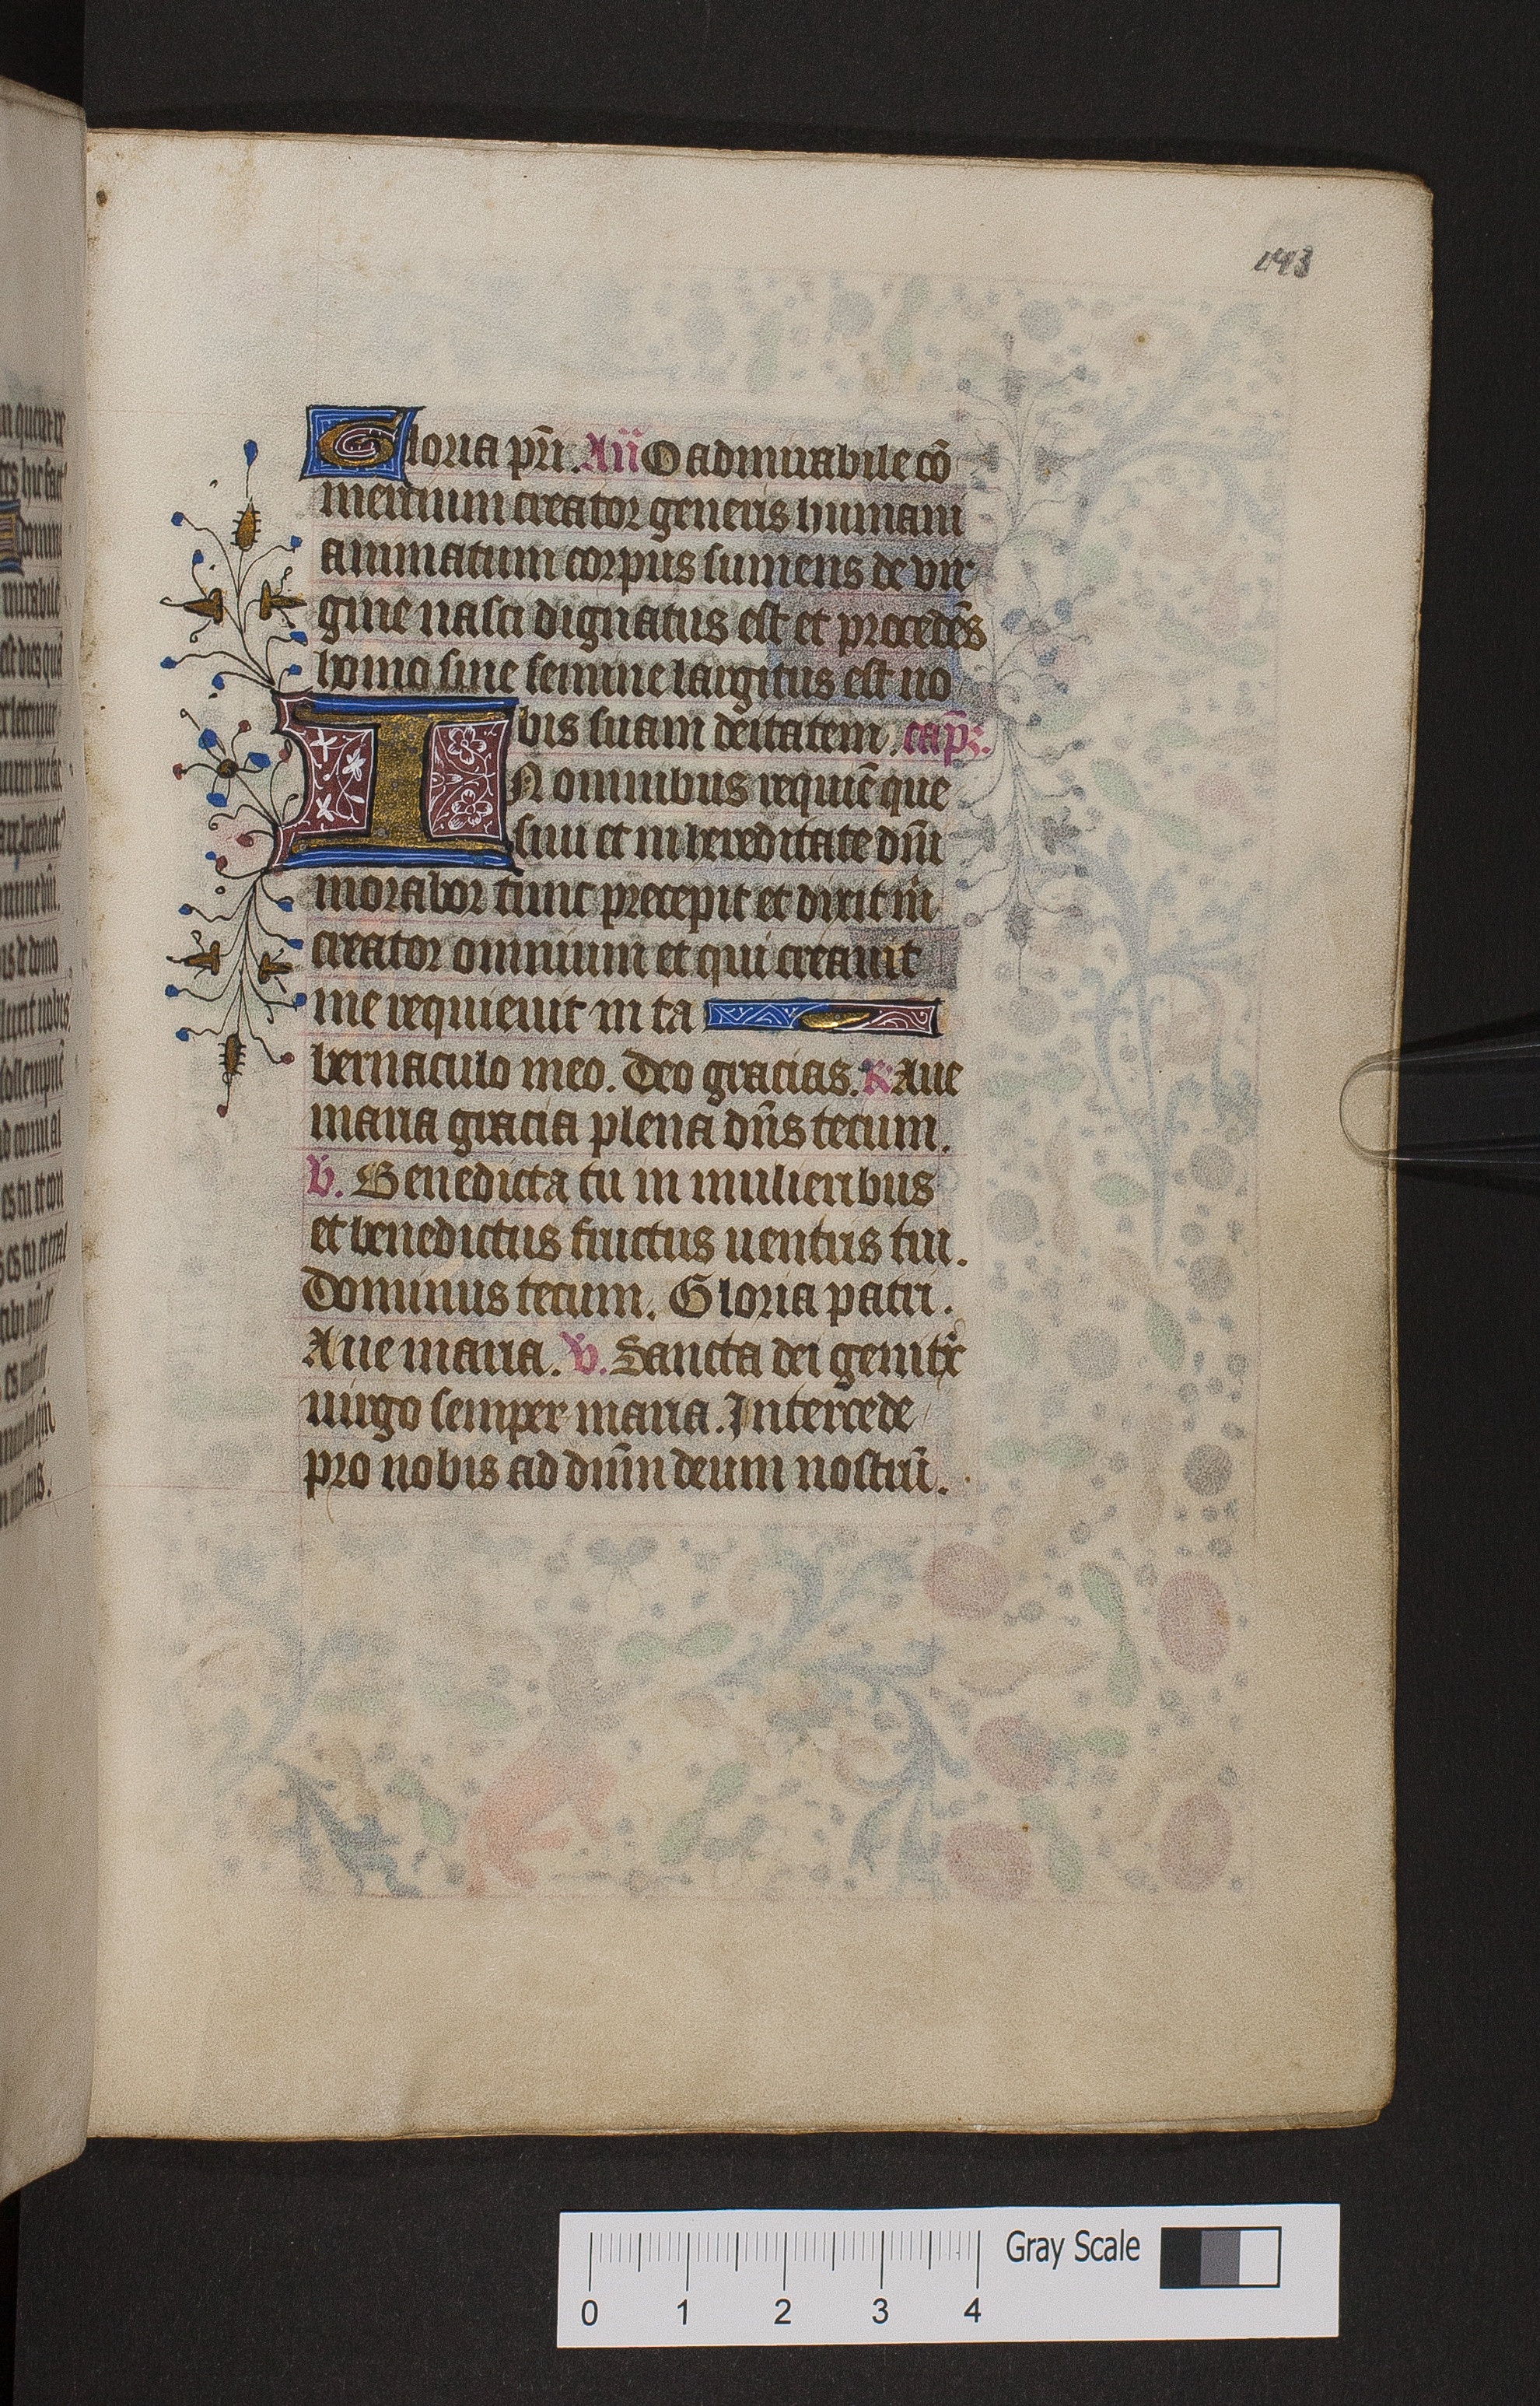 143
Gloria pr̄i. An̄ O admirabile cō
mertium creator generis humani
animatum corpus sumens de vir
gine nasci dignatus est et procedēs
homo sine semine largitus est no
bis suam deitatem. cap̄.
IN omnibus requiē que
siui et in hereditate dn̄i
morabor tunc precepit et dixit m̄
creator omnium et qui creauit
me requieuit in ta
bernaculo meo. Deo gracias. R Aue
maria gracia plena dn̄s tecum.
V. Benedicta tu in mulieribus
et benedictus fructus uentris tui.
Dominus tecum. Gloria patri.
Aue maria. V. Sancta dei genitx
uirgo semper maria. Intercede
pro nobis ad dnm̄ deum nostrū.
Gray Scale
0 1 2 3 4